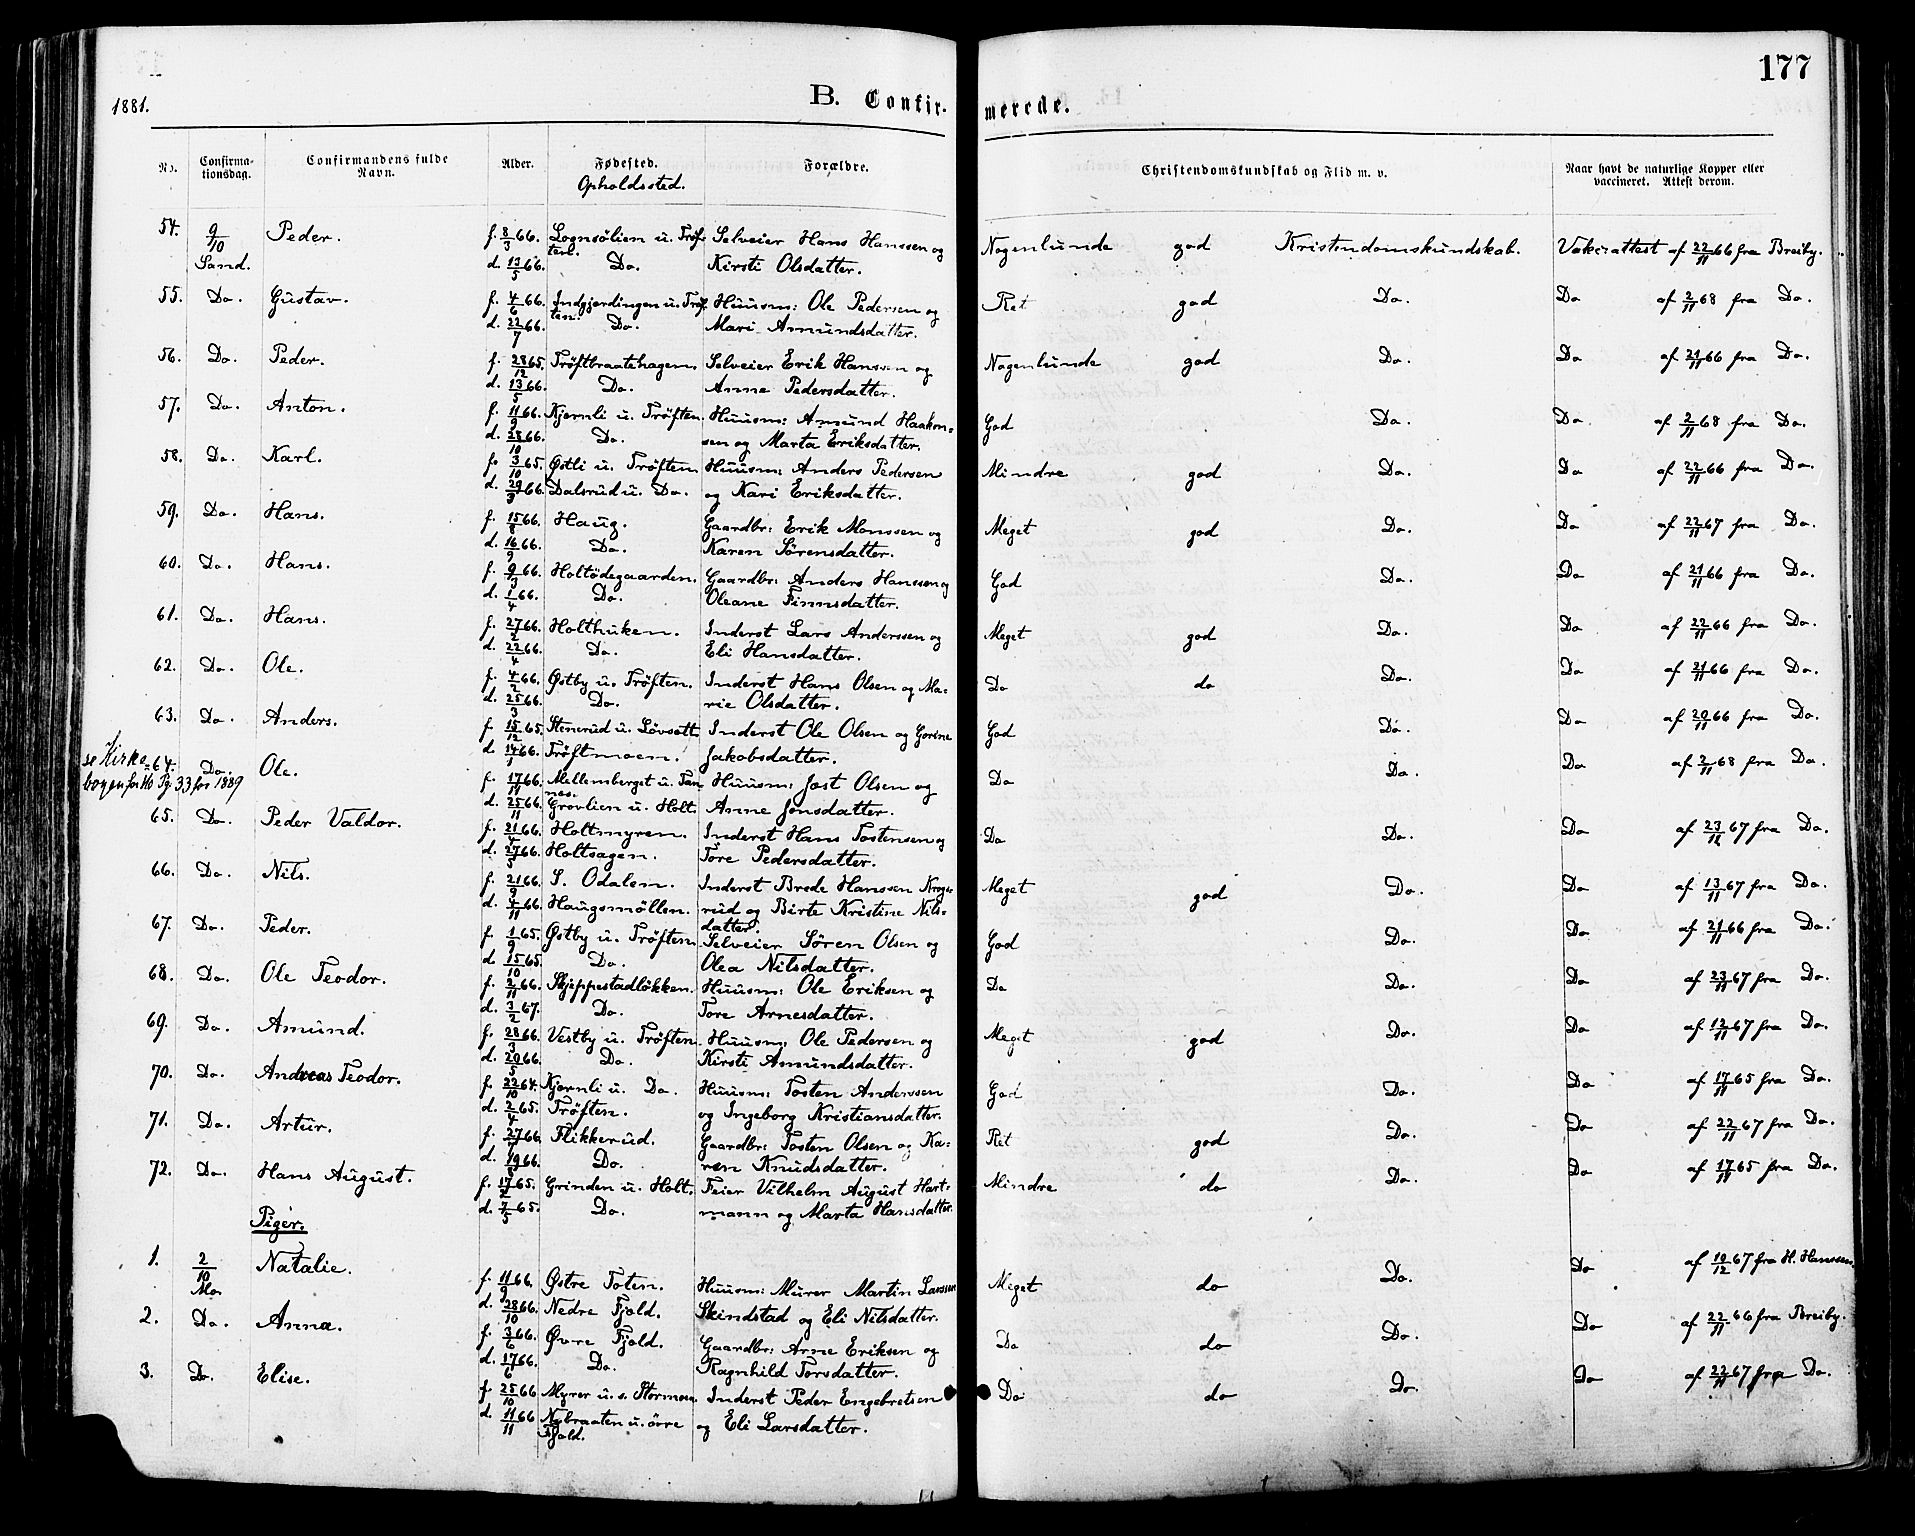 177
1881.
B. Confir-
merede.
No.
Confirma-
tionsdag.
Confirmandens fulde
Navn.
Alder.
Fødested.
Opholdssted.
Forældre.
Christendomskundskab og Flid m. v.
Naar havt de naturlige Kopper eller
vaccineret. Attest derom.
54. 9/10 Peder. f. 8/3 66. Lognsölien u. Tröf- Selveier Hans Hanssen og Nogenlunde god Kristendomskundskab. Vakc:attest af 22/11 66 fra Breiby.
Sand. d. 13/5 66. ten. Do. Kirsti Olsdatter.
55. Do. Gustav. f. 4/6 66. Indgjerdingen u. Tröf- Huusm: Ole Pedersen og Ret god Do. Do af 2/11 68 fra Do.
d. 22/7 66. ten. Do. Mari Amundsdatter.
56. Do. Peder. f. 28/12 65. Tröftbraatehagen. Selveier Erik Hanssen og Nogenlunde god Do. Do af 21/11 66 fra Do.
d. 13/5 66. Do. Anne Pedersdatter.
57. Do. Anton. f. 11/9 66. Kjernli u. Tröften. Huusm: Amund Haakon- God Do. Do. af 2/11 68 fra Do.
d. 28/10 66. Do. sen og Marta Eriksdatter.
58. Do. Karl. f. 3/10 65. Østli u. Tröften. Huusm: Anders Pedersen Mindre god Do. Do af 22/11 66 fra Do.
d. 29/3 66. Dalsrud u. Do. og Kari Eriksdatter.
59. Do. Hans. f. 15/8 66. Haug. Gaardbr: Erik Monssen og Meget god Do. Do af 22/11 67 fra Do.
d. 16/9 66. Do. Karen Sörensdatter.
60. Do. Hans. f. 9/3 66. Holtödegaarden. Gaardbr: Anders Hanssen og God Do. Do af 21/11 66 fra Do.
d. 1/4 66. Do. Oleane Finnsdatter.
61. Do. Hans. f. 27/2 66. Holthuken. Inderst Lars Anderssen og Meget god Do. Do af 22/11 66 fra Do.
d. 22/4 66. Do. Eli Hansdatter.
62. Do. Ole. f. 4/2 66. Østby u. Tröften. Inderst Hans Olsen og Ma- Do do Do. Do af 21/11 66 fra Do.
d. 25/3 66. Do. rie Olsdatter.
63. Do. Anders. f. 15/12 65. Stenerud u. Lövsett. Inderst Ole Olsen og Gorine God Do. Do af 20/11 66 fra Do.
d. 14/1 66. Tröftmoen. Jakobsdatter.
se Kirke-
bogen for Ho Pg. 33 for 1889
64. Do. Ole. f. 17/11 66. Mellemberget u. Huusm: Jost Olsen og Do Do. Do af 2/11 68 fra Do.
d. 25/11 66. Grovlien u. Holt. Anne Jonsdatter.
65. Do. Peder Valdor. f. 21/4 66. Holtmyren. Inderst Hans Tostensen og Do Do. Do af 23/12 67 fra Do.
d. 27/5 66. Holtsagen. Tore Pedersdatter.
66. Do. Nils. f. 21/9 66. S. Odalen. Inderst Brede Hanssen Meget god Do. Do af 13/11 67 fra Do.
d. 4/11 66. Haugsmöllen. rud og Birte Kristine Nils-
datter.
67. Do. Peder. f. 1/9 65. Østby u. Tröften. Selveier Sören Olsen og God Do. Do. af 21/11 66 fra Do.
d. 15/10 65. Do. Olea Nilsdatter.
68. Do. Ole Teodor. f. 2/11 66. Skjeppestadlökken. Huusm: Ole Eriksen og Do Do. Do af 23/11 67 fra Do.
d. 3/2 67. Do. Tore Arnesdatter.
69. Do. Amund. f. 28/3 66. Vestby u. Tröften. Huusm: Ole Pedersen og Meget god Do. Do af 12/11 67 fra Do.
d. 20/5 66. Do. Kirsti Amundsdatter.
70. Do. Andreas Teodor. f. 22/10 64. Kjernli u. Do. Huusm: Tosten Anderssen God Do. Do af 17/11 65 fra Do.
d. 2/4 65. Tröften. og Ingeborg Kristiansdatter.
71. Do. Artur. f. 27/7 66. Flikkerud. Gaardbr: Tosten Olsen og Ka- Ret god Do. Do af 22/11 67 fra Do.
d. 19/8 66. Do. ren Knudsdatter.
72. Do. Hans August. f. 17/2 65. Grinden u. Holt. Feier Vilhelm August Hart- Mindre do Do. Do af 17/11 65 fra Do.
d. 7/5 65. Do. mann og Marta Hansdatter.
Piger.
1. 2/10 Natalie. f. 11/9 66. Østre Toten. Huusm: Murer Martin Larssen Meget do Do. Do af 10/12 67 fra H. Hanssen.
Mo. d. 28/10 66. Nedre Fjeld. Skindstad og Eli Nilsdatter.
2. Do. Anna. f. 3/6 66. Øvre Fjeld. Gaardbr: Arne Eriksen og Do do Do. Do af 22/11 66 fra Breiby.
d. 17/6 66. Do. Ragnhild Torsdatter.
3. Do. Elise. f. 25/10 66 Myrer u. s. Stormoen Inderst Peder Engebretsen Do do Do. Do af 22/11 67 fra Do.
d. 11/11 66 Nybraaten u. övre og Eli Larsdatter.
Fjeld.